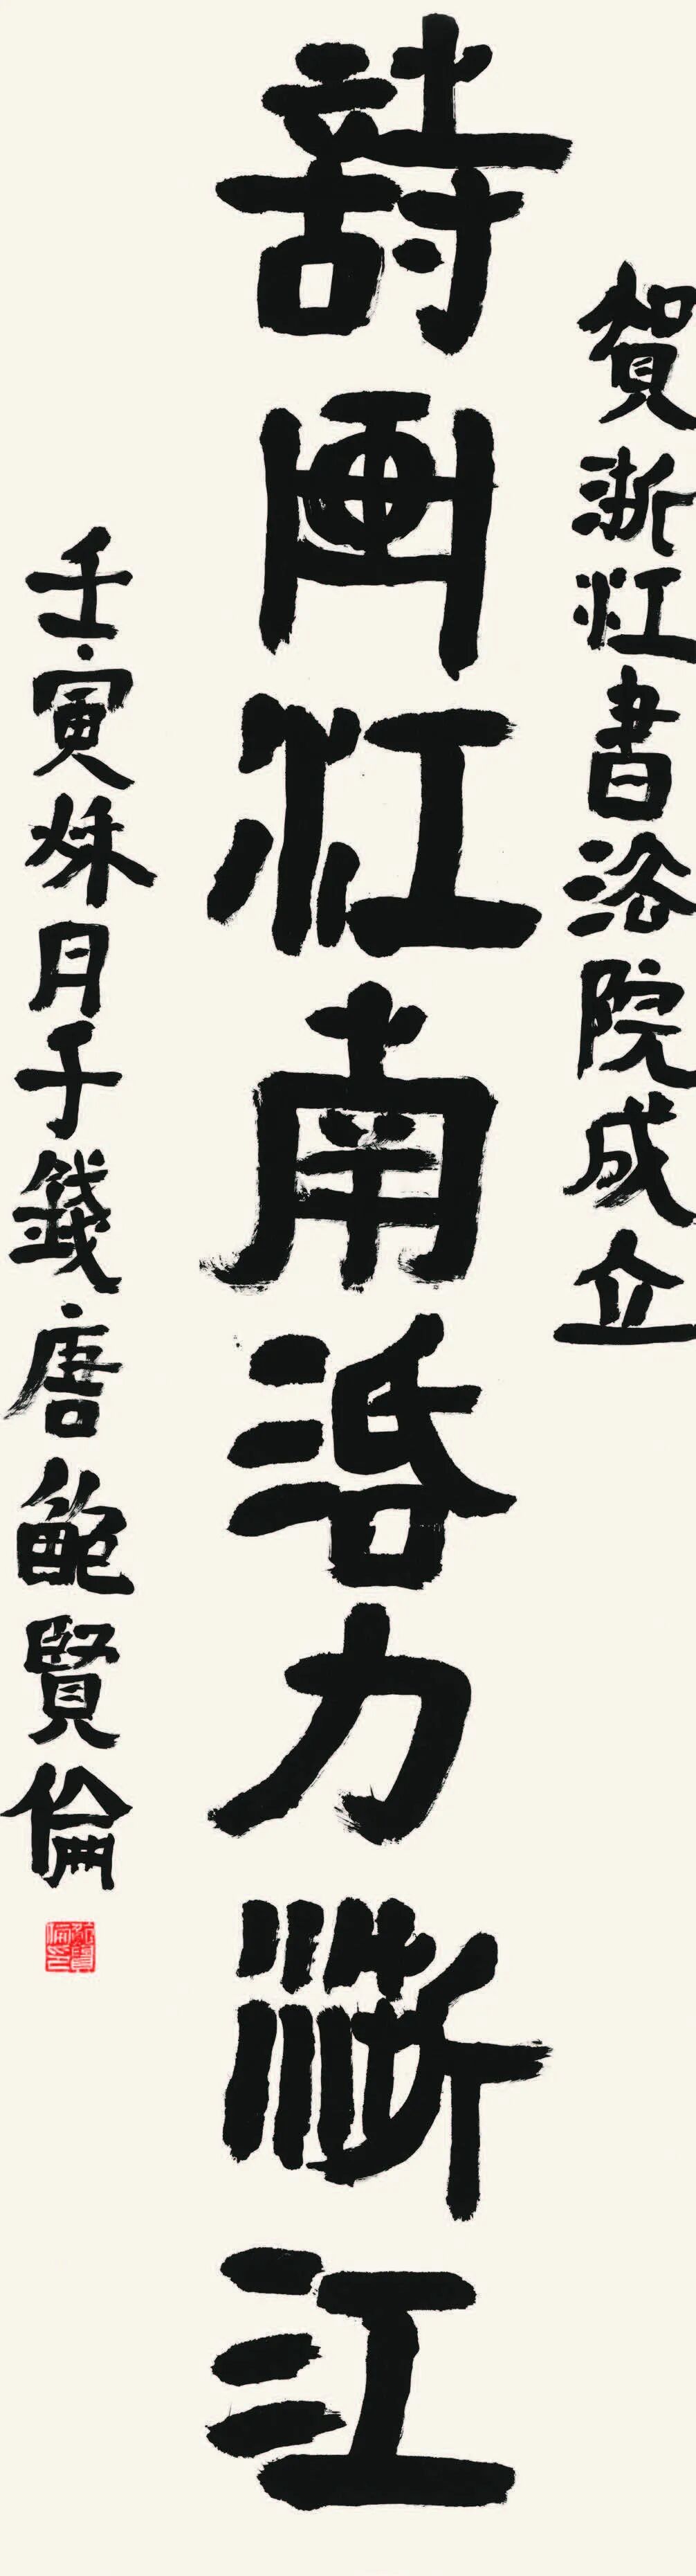 賀浙江書法院成立
詩画江南活力浙江
壬寅秋月于錢唐鮑賢倫